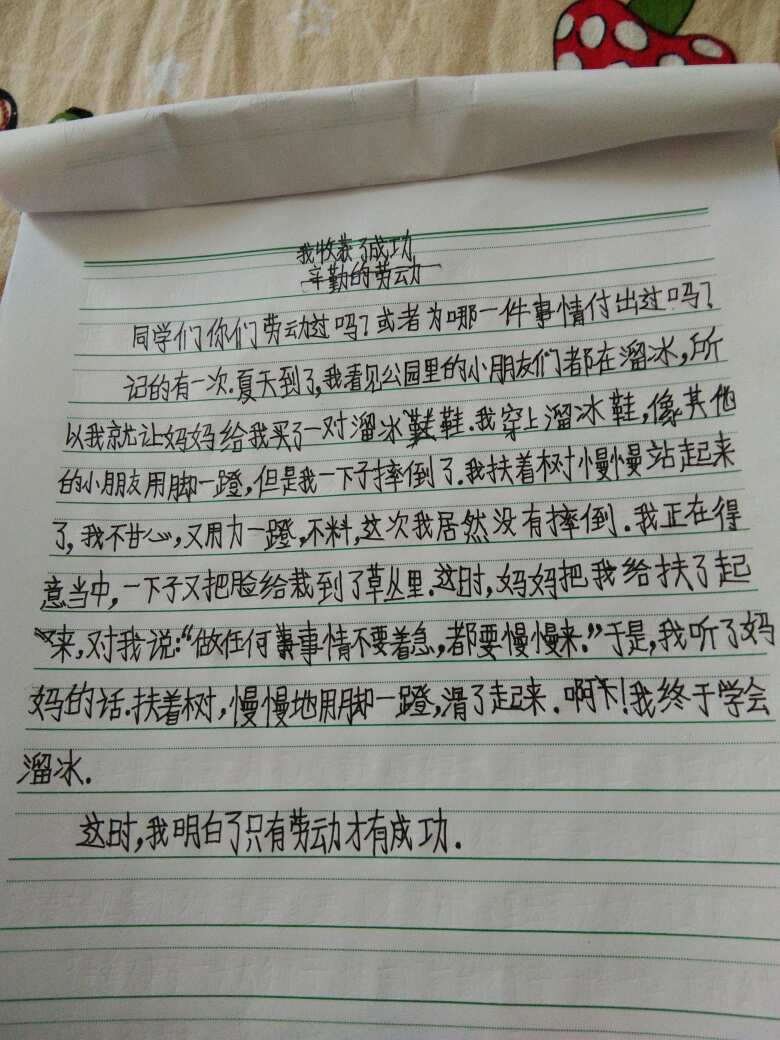 我收获了成功
辛勤的劳动
同学们你们劳动过吗？或者为哪一件事情付出过吗？
记的有一次.夏天到了,我看见公园里的小朋友们都在溜冰,所
以我就让妈妈给我买了一对溜冰鞋.我穿上溜冰鞋,像其他
的小朋友用脚一蹬,但是我一下子摔倒了.我扶着树慢慢站起来
了,我不甘心,又用力一蹬,不料,这次我居然没有摔倒.我正在得
意当中,一下子又把脸给栽到了草丛里.这时,妈妈把我给扶了起
来,对我说:“做任何事情不要着急,都要慢慢来.”于是,我听了妈
妈的话.扶着树,慢慢地用脚一蹬,滑了起来.啊!我终于学会
溜冰.
这时,我明白了只有劳动才有成功.